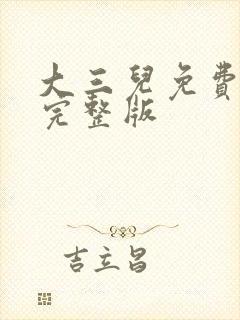 大三兒免費
完整版
吉立昌